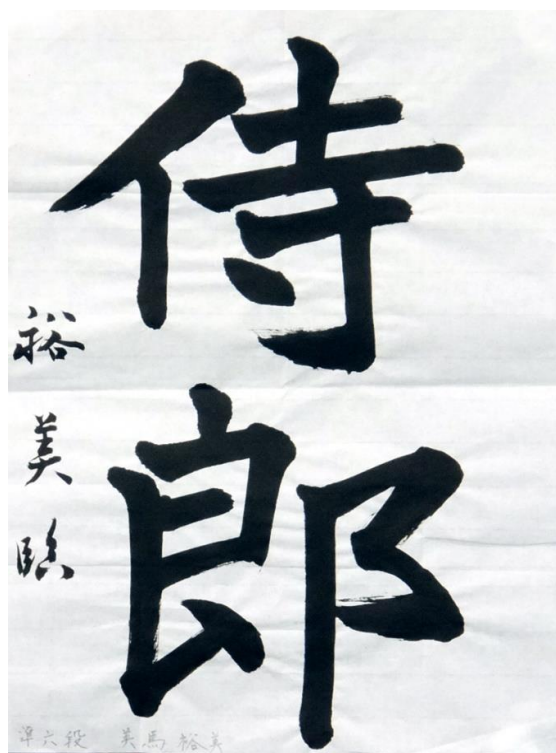 侍郎
裕美臨
準六段 美馬裕美